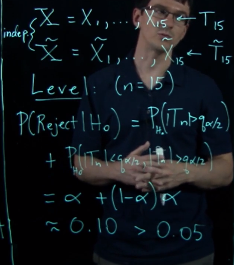 indep. { X = X₁, ..., X₁₅ ← T₁₅
X̃ = X̃₁, ..., X̃₁₅ ← T̃₁₅
Level: (n=15)
P(Reject | H₀) = P_H₀(|Tₙ|>q_α/2)
+ P_H₀(|Tₙ|<q_α/2, |T̃ₙ|>q_α/2)
= α + (1-α) α
≈ 0.10 > 0.05